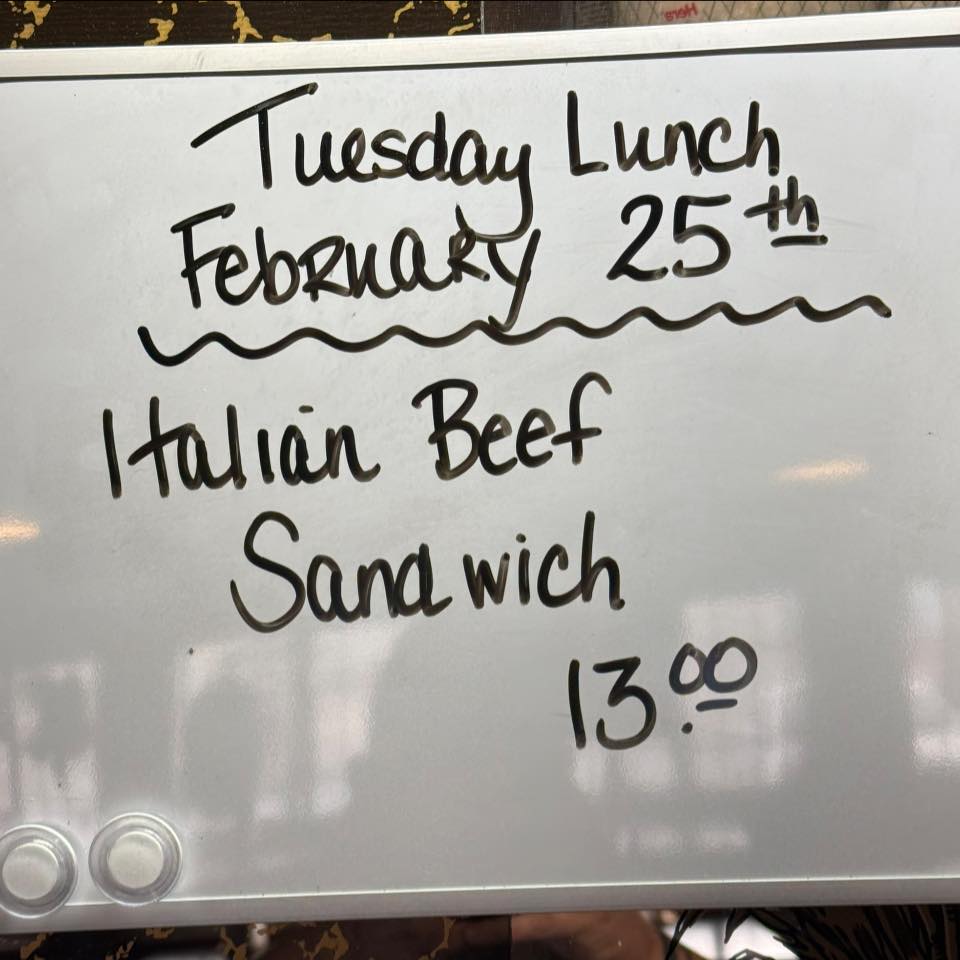 Tuesday Lunch
February 25th
Italian Beef
Sandwich
13.00